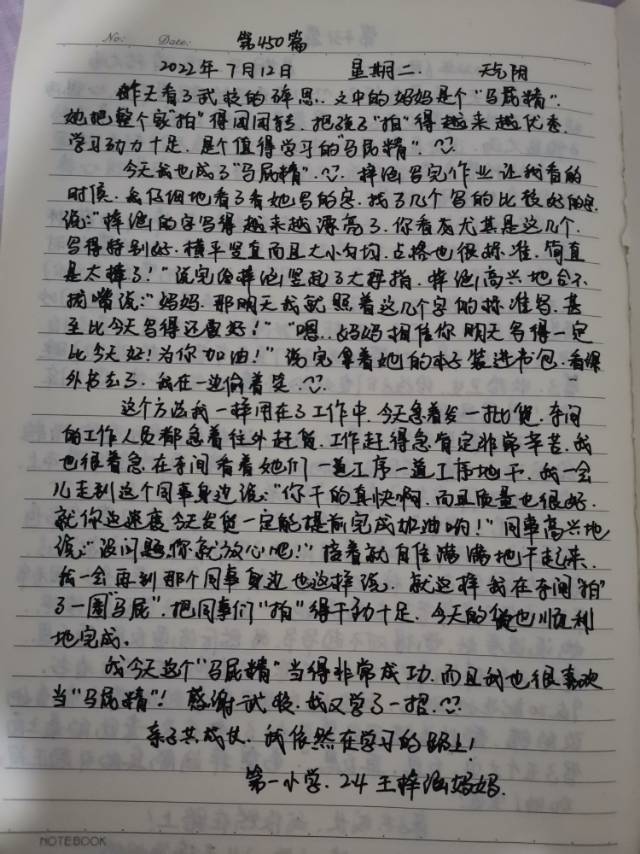 No: Date: 第450篇
2022年7月12日 星期二. 天气阴
昨天看了武校的碎思..文中的妈妈是个“马屁精”.
她把整个家“拍”得团团转.把孩子“拍”得越来越优秀.
学习动力十足.是个值得学习的“马屁精”.
今天我也成了“马屁精”.梓涵写完作业让我看的
时候.我仔细地看了看她写的字.找了几个写的比较好的字
说:“梓涵的字写得越来越漂亮了.你看看尤其是这几个.
写得特别好.横平竖直而且大小匀均.占格也很标准.简直
是太棒了!”说完给梓涵竖起了大拇指.梓涵高兴地合不
拢嘴说:“妈妈.那明天我就照着这几个字的标准写.甚
至比今天写得还要好!”“嗯..妈妈相信你明天写得一定
比今天好!为你加油!”说完拿着她的本子装进书包.看课
外书去了.我在一边偷着笑.
这个方法我一样用在了工作中.今天急着发一批货.车间
的工作人员都急着往外赶货.工作赶得急肯定非常辛苦.我
也很着急.在车间看着她们一道工序一道工序地干.我一会
儿走到这个同事身边说:“你干的真快啊.而且质量也很好.
就你这速度今天发货一定能提前完成加油哟!”同事高兴地
说:“没问题.你就放心吧!”接着就自信满满地干起来.
我一会再到那个同事身边也这样说.就这样我在车间“拍”
了一圈“马屁”.把同事们“拍”得干劲十足.今天的货也顺利
地完成.
我今天这个“马屁精”当得非常成功.而且我也很喜欢
当“马屁精”!感谢武校.我又学了一招.
亲子共成长.我依然在学习的路上!
第一小学.24 王梓涵妈妈.
NOTEBOOK